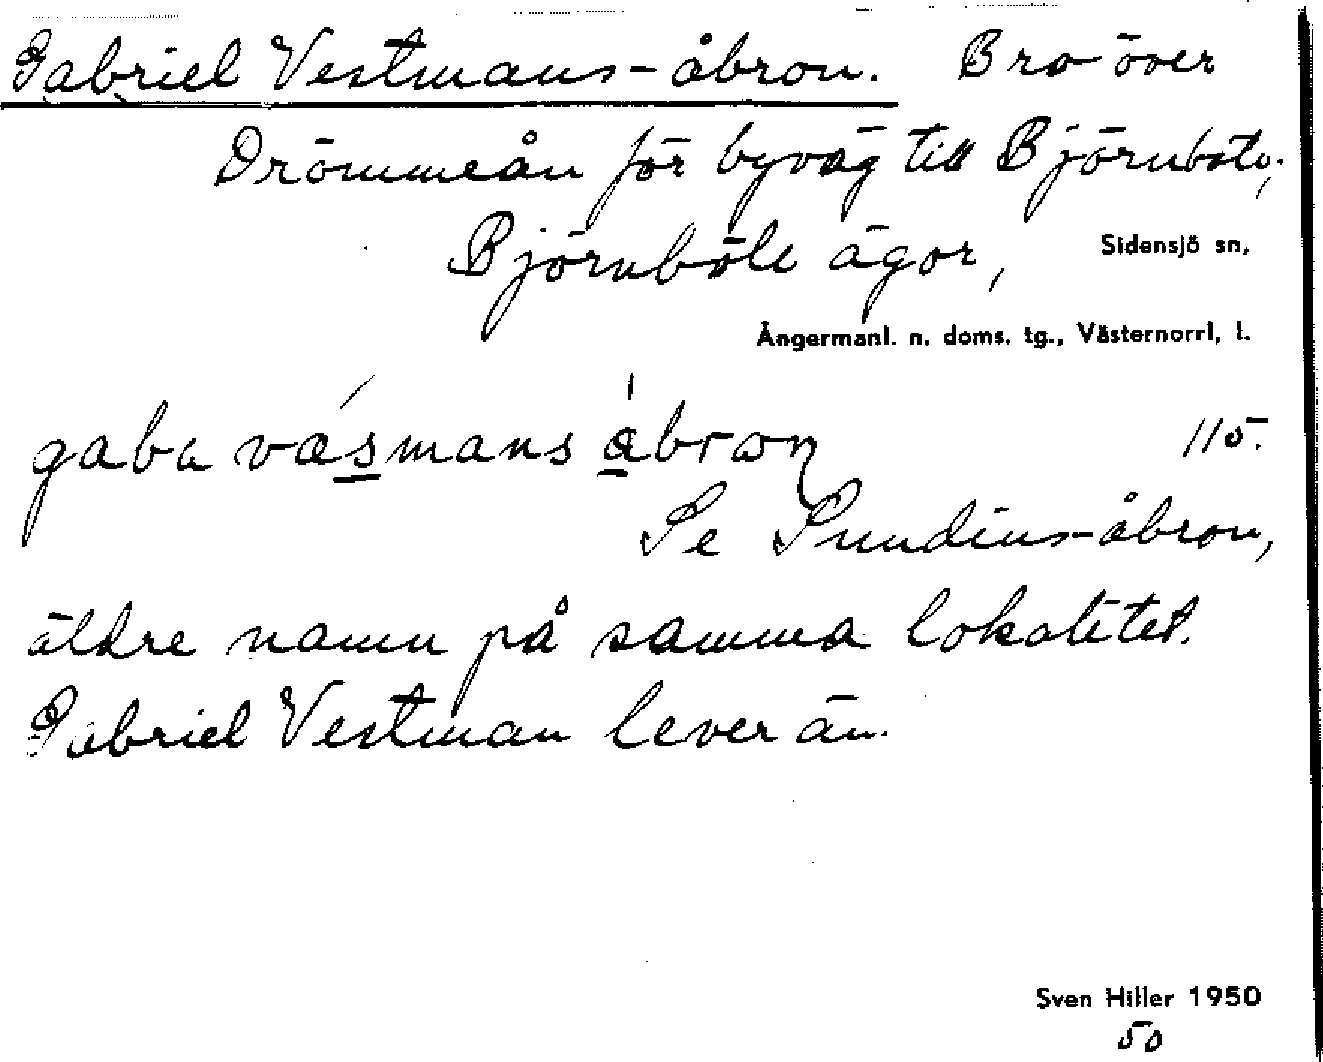 Gabriel Vestmans-åbron. Bro över
Drömmeån för byväg till Björnböle,
Björnböle ägor, Sidensjö sn,
Ångermanl. n. doms. tg., Västernorrl, l.
gaba väsmans åbron 115.
Se Sundins-åbron,
äldre namn på samma lokalitet.
Gabriel Vestman lever än.
Sven Hiller 1950
50